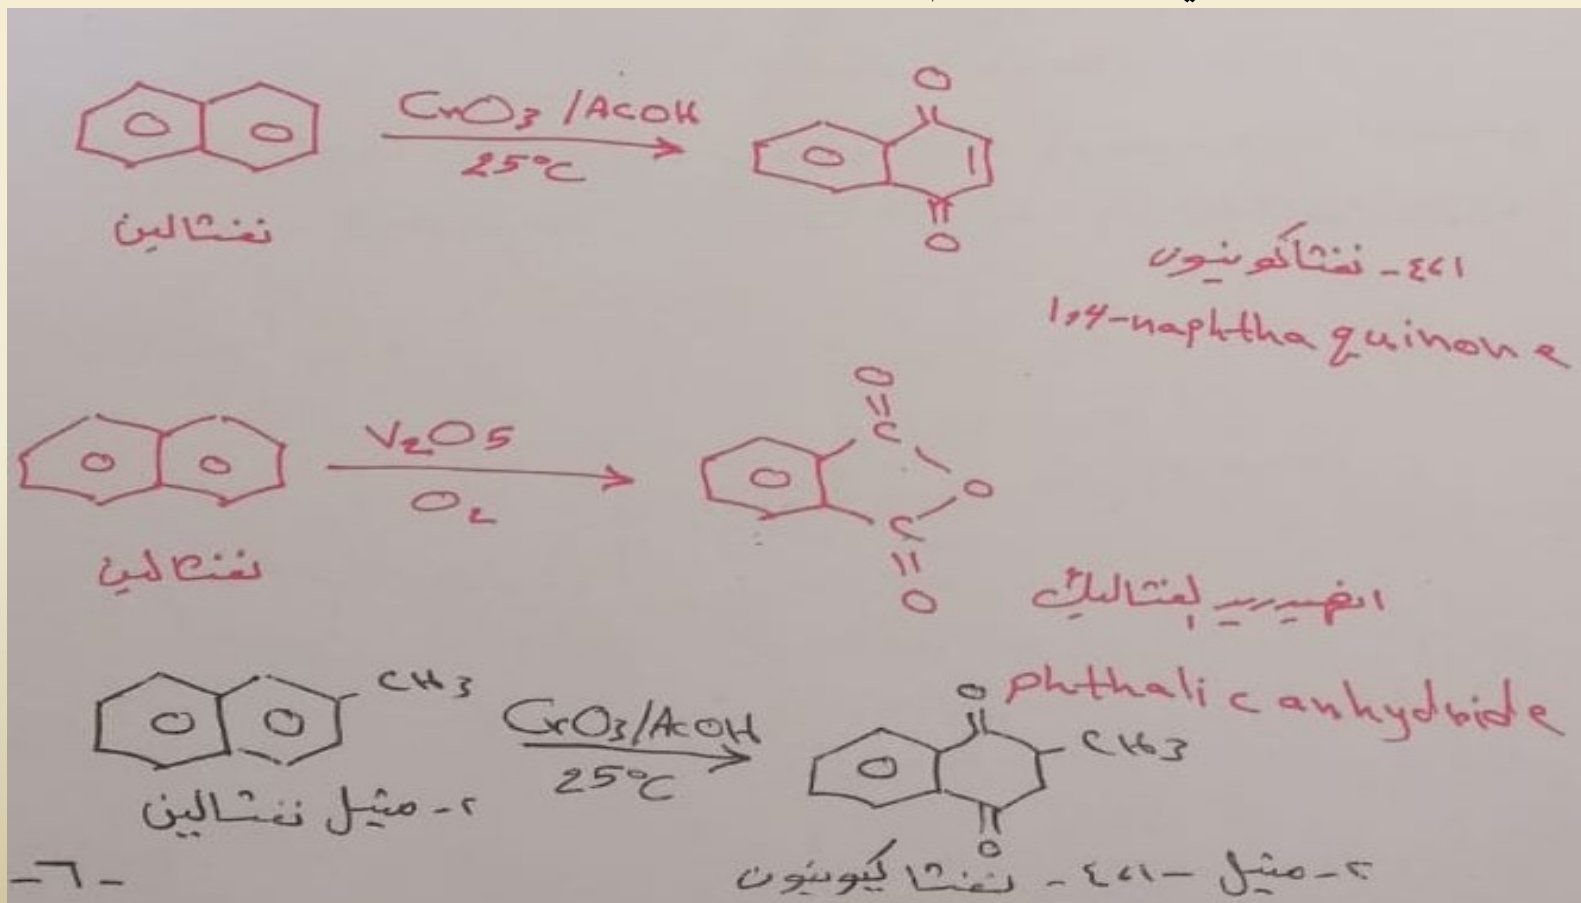 CrO3 / AcOH
25°C
O
O
نفثالين
١،٤ - نفثاكوينون
1,4-naphtha quinone
V2O5
O2
O
C
O
C
O
نفثالين
انهيدريد الفثاليك
phthalic anhydride
CH3
CrO3/AcOH
25°C
O
CH3
O
٢- مثيل نفثالين
٢- مثيل -١،٤- نفثا كيوينون
-٦-